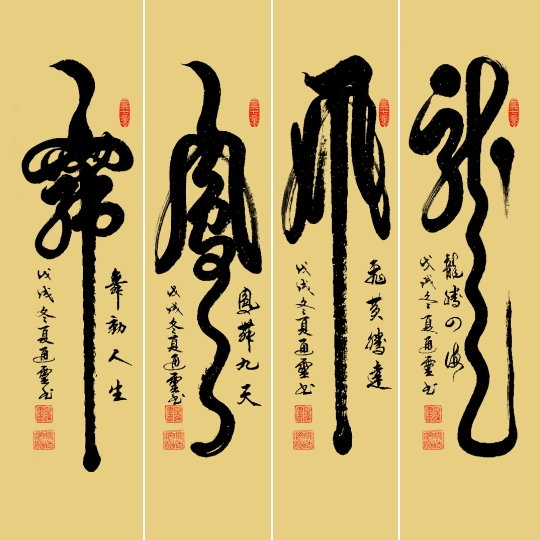 龍
龍騰四海
戊戌冬夏通靈书
飛
飛黃騰達
戊戌冬夏通靈书
鳳
鳳舞九天
戊戌冬夏通靈书
舞
舞動人生
戊戌冬夏通靈书